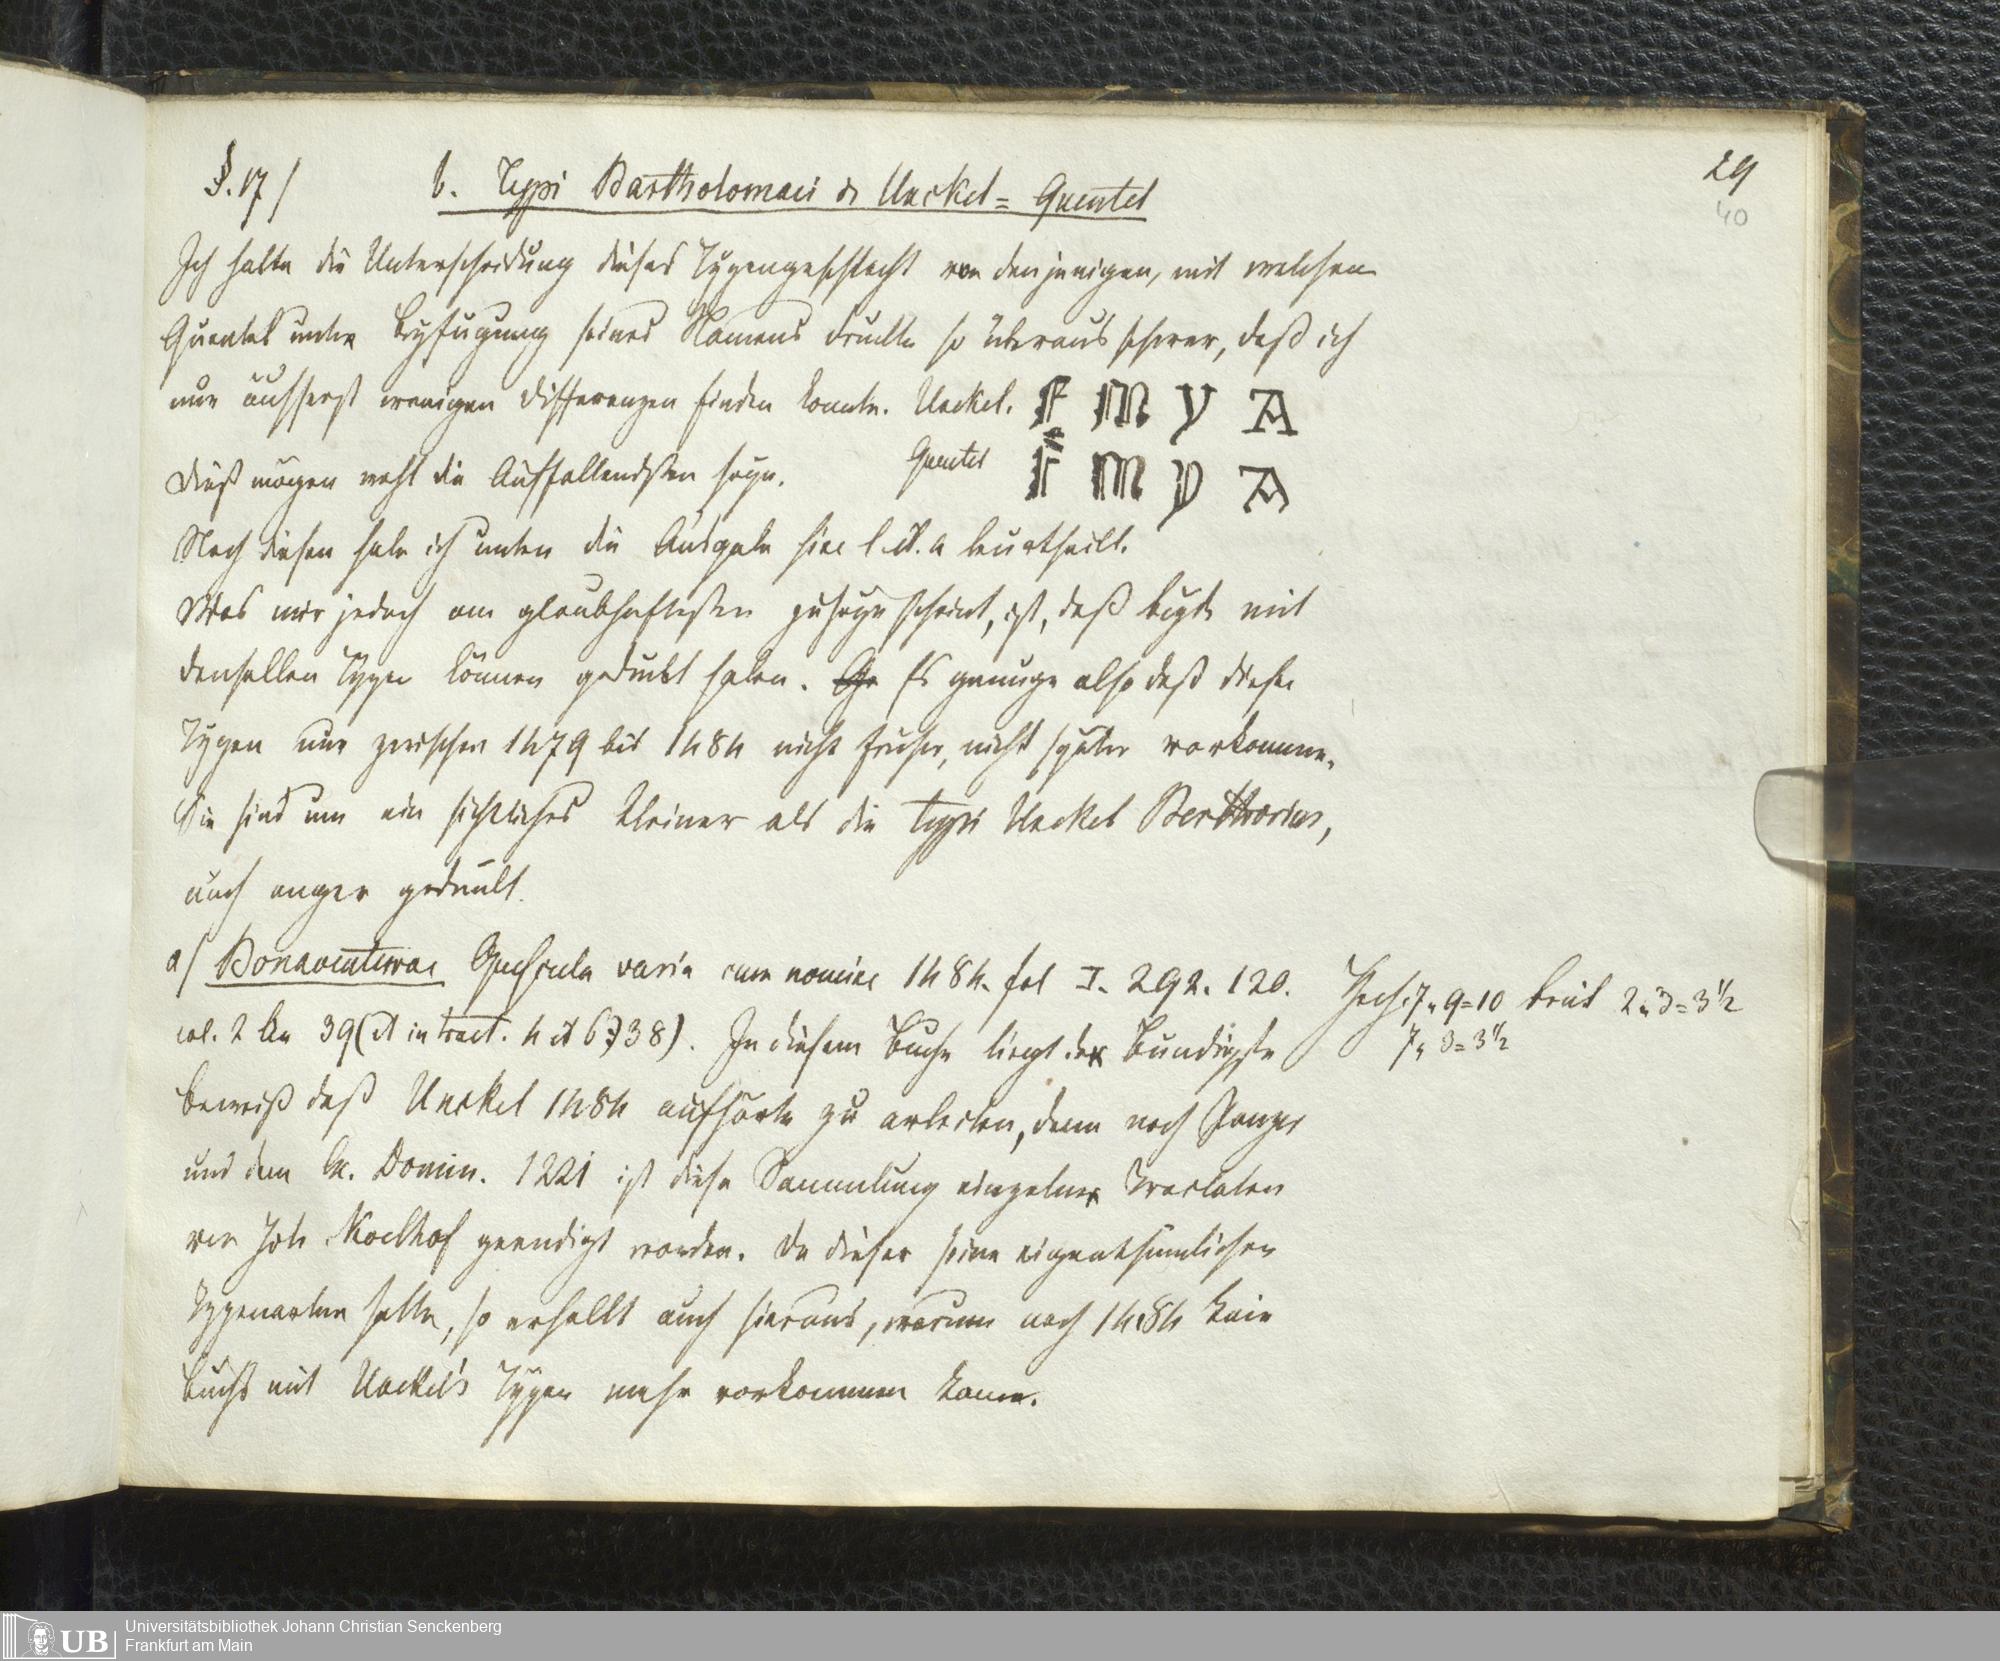 29
40
§. 17/ b. Typi Bartholomaei de Unckel = Quentel
Ich halte die Unterscheidung dieses Typengeschlecht von denjenigen, mit welchen
Quentel unter Beyfugung seines Namens druckte so überaus schwer, daß ich
nur äusserst wenigen Differenzen finden konnte. Unckel. F M Y A
Dieß mögen wohl die Auffallendsten seyn. Quentel F M Y A
Nach diesen habe ich unten die Ausgabe hier lit. a beurtheilt.
Was mir jedoch am glaubhaftesten zu seyn scheint, ist, daß beyde mit
denselben Typen können gedruckt haben. Es genuge also daß diese
Typen nur zwischen 1479 bis 1484 nicht fruher, nicht später vorkommen.
Sie sind um ein sichtliches kleiner als die typi Unckel
auch enger gedruckt.
a/ Bonaventurae Opuscula varia cum nomine 1484. fol I. 292. 120.
col. 2 39 (et in tract. 4 et 6 38). In diesem Buche liegt der bundigste
Beweiß daß Unckel 1484 aufhörte zu arbeiten, denn nach Panzer
und dem Ex. Domin. 1221 ist diese Sammlung einzelner Tractaten
von Joh Koelhof geendigt worden. Da dieser seine eigenthumlichen
Typenarten hatte, so erhellt auch hieraus, warum nach 1484 kein
Buch mit Unckel's Typen mehr vorkommen kann.
Hoch. 7, 9=10 breit 2, 3=3½
7, 3=3½
Universitätsbibliothek Johann Christian Senckenberg
Frankfurt am Main
UB